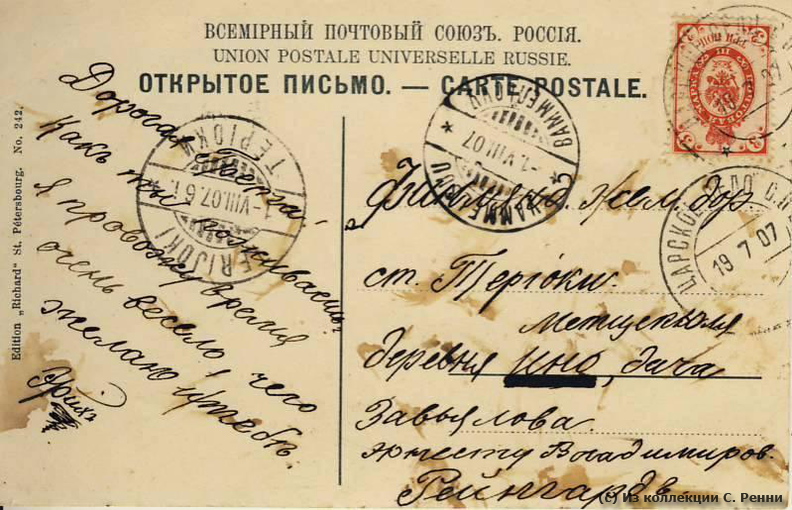 ВСЕМІРНЫЙ ПОЧТОВЫЙ СОЮЗЪ. РОССІЯ.
UNION POSTALE UNIVERSELLE RUSSIE.
ОТКРЫТОЕ ПИСЬМО. — CARTE POSTALE.
Edition „Richard" St. Pétersbourg. No. 242.
Дорогая
какъ ты поживаешь?
я провожу время
очень весело, чего
желаю и тебѣ.
Эрихъ
TERIJOKI TEPIOKИ
1-VIII.07.6
HAMMELJOU ВАММЕЛЮУ
-1.VIII.07
ЦАРСКОЕ СЕЛО
19 7 07
ТРИ КОП.
3
Финлянд. жел. дор.
ст. Теріоки.
деревня Ино, дача
Завьялова.
Эрнесту Владиміров.
Рейнгардъ
(c) Из коллекции С. Ренни